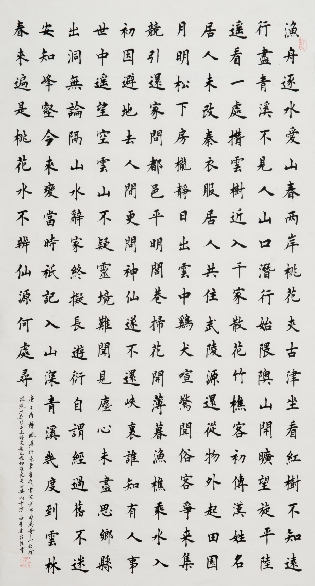 漁舟逐水愛山春兩岸桃花夾古津坐看紅樹不知遠
行盡青溪不見人山口潛行始隈隩山開曠望旋平陸
遙看一處攢雲樹近入千家散花竹樵客初傳漢姓名
居人未改秦衣服居人共住武陵源還從物外起田園
月明松下房櫳靜日出雲中鷄犬喧驚聞俗客爭來集
競引還家問都邑平明閭巷掃花開薄暮漁樵乘水入
初因避地去人間更問神仙遂不還峽裏誰知有人事
世中遙望空雲山不疑靈境難聞見塵心未盡思鄉縣
出洞無論隔山水辭家終擬長遊衍自謂經過舊不迷
安知峰壑今來變當時祇記入山深青溪幾度到雲林
春來遍是桃花水不辨仙源何處尋